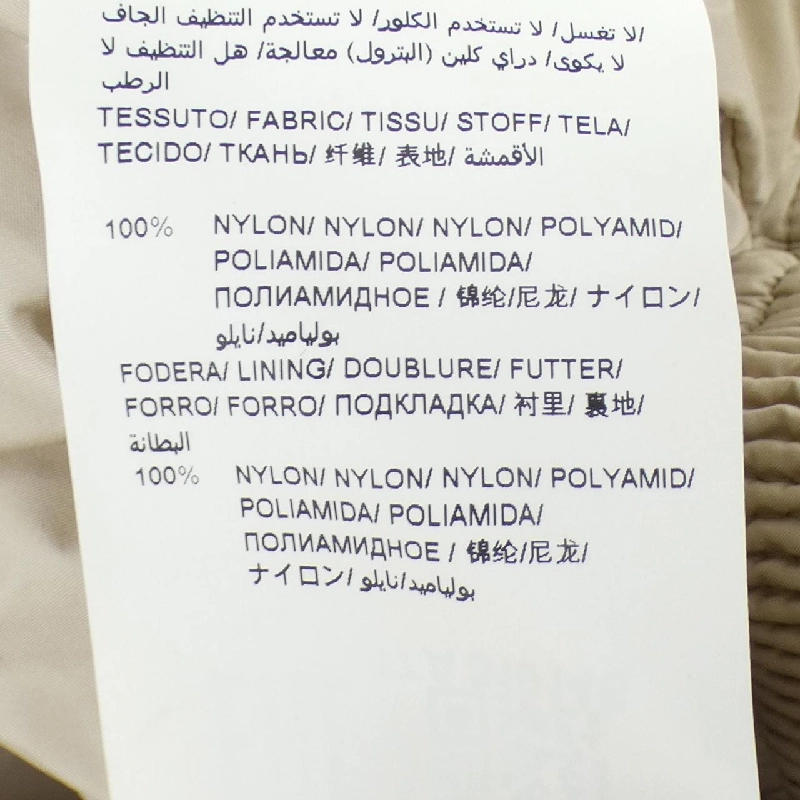 لا تغسل/ لا تستخدم الكلور/ لا تستخدم التنظيف الجاف/
لا يكوى/ دراي كلين (البترول) معالجة/ هل التنظيف لا
الرطب
TESSUTO/ FABRIC/ TISSU/ STOFF/ TELA/
TECIDO/ ТКАНЬ/ 纤维/ 表地/ الأقمشة
100% NYLON/ NYLON/ NYLON/ POLYAMID/
POLIAMIDA/ POLIAMIDA/
ПОЛИАМИДНОЕ / 锦纶/尼龙/ ナイロン/
بولياميد/نايلو
FODERA/ LINING/ DOUBLURE/ FUTTER/
FORRO/ FORRO/ ПОДКЛАДКА/ 衬里/ 裏地/
البطانة
100% NYLON/ NYLON/ NYLON/ POLYAMID/
POLIAMIDA/ POLIAMIDA/
ПОЛИАМИДНОЕ / 锦纶/尼龙/
ナイロン/ بولياميد/نايلو